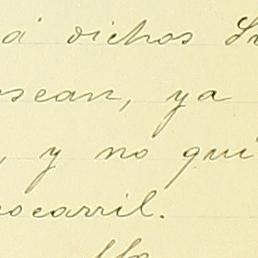 á dichos
sean, ya
, y no qui
ocarril.